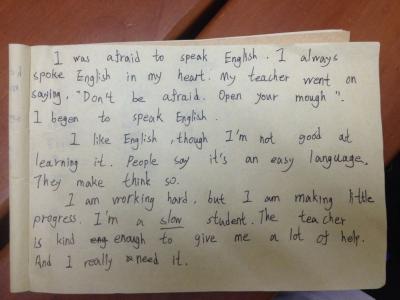 I was afraid to speak English. I always
spoke English in my heart. My teacher went on
saying, "Don't be afraid. Open your mough".
I began to speak English.
I like English, though I'm not good at
learning it. People say it's an easy language.
They make think so.
I am working hard, but I am making little
progress. I'm a slow student. The teacher
is kind eng enough to give me a lot of help.
And I really need it.